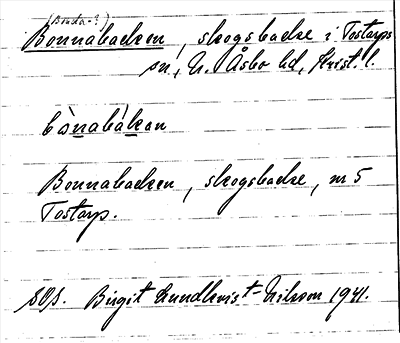 (Bonda-?)
Bonnabacken, skogsbacke i Tostarps
sn., N. Åsbo hd, Krist. l.
bònabákan
Bonnabacken, skogsbacke, nr 5
Tostarp.
SOS. Birgit Lundkvist-Nilsson 1941.